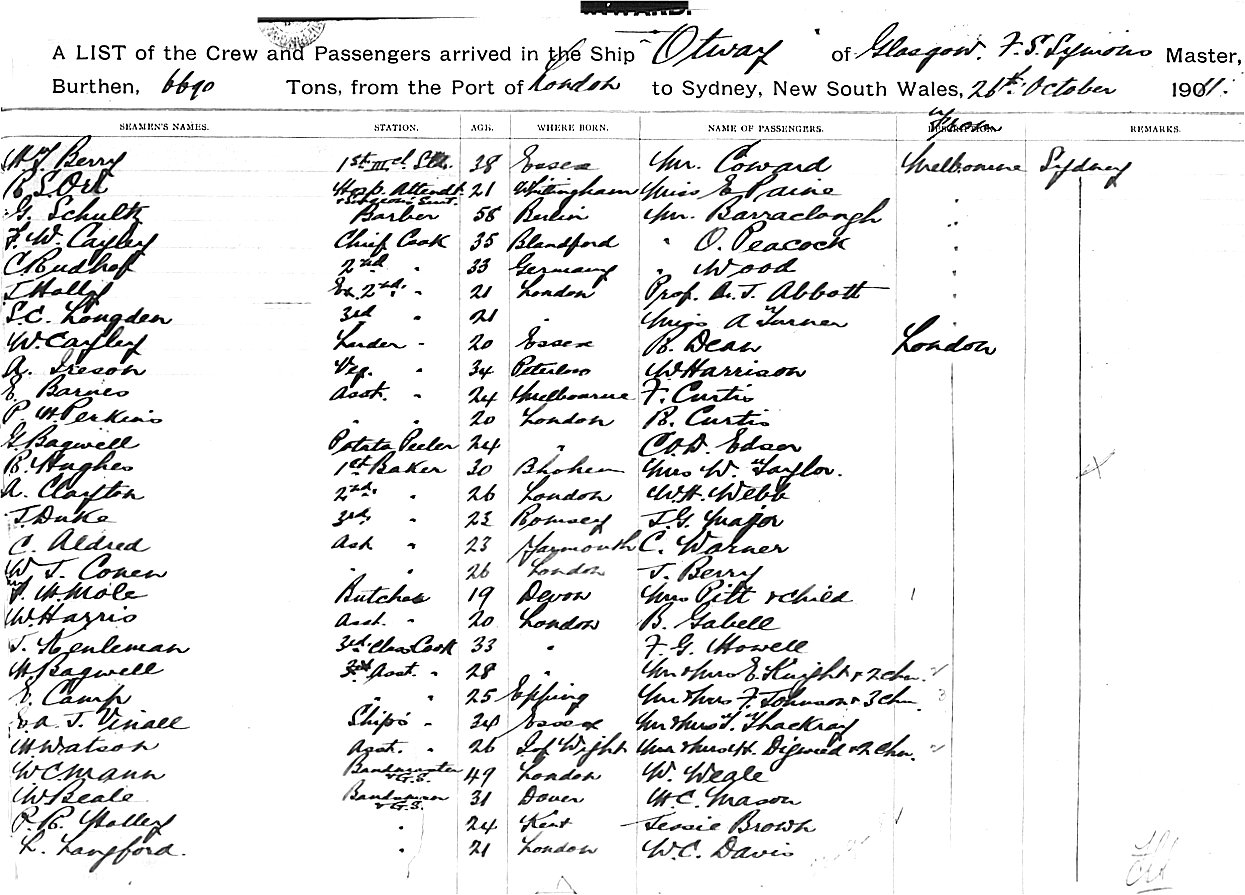 INWARD.
A LIST of the Crew and Passengers arrived in the Ship "Otway" of Glasgow. F. S. Symons Master,
Burthen, 6690 Tons, from the Port of London to Sydney, New South Wales, 26th October 1911.
SEAMEN'S NAMES. STATION. AGE. WHERE BORN. NAME OF PASSENGERS. From REMARKS.
Berry 1st IIIcl 38 Essex Mr. Coward Melbourne Sydney
R. S. Orr Hosp. Attendt. 21 Whitingham Miss E Paine "
G. Schultz Barber 58 Berlin Mr. Barraclough "
F. W. Cayley Chief Cook 35 Blandford " O. Peacock "
C Rudhof 2nd " 33 Germany " Wood "
J Holly Ex. 2nd " 21 London Prof. A. J. Abbott "
S. C. Longden 3rd " 21 " Miss A Turner "
W. Cayley Larder " 20 Essex R. Dean London
A. Ireson Veg. " 34 Peterboro W Harrison
E Barnes Asst. " 24 Melbourne F. Curtis
P. H Perkins " " 20 London R. Curtis
G Bagwell Potato Peeler 24 " C. D. Edser
R. Hughes 1st Baker 30 Mrs W. Taylor.
A. Clayton 2nd " 26 London W. H. Webb
J. Duke 3rd " 23 Romsey J. G. Major
C. Aldred Asst " 23 Yarmouth C. Warner
W J. Conen " " 26 London J. Berry
H. Mole Butcher 19 Devon Mrs Pitt & child 1
W Harris Asst. " 20 London B. Gabell
J. Kenleman 3rd Class Cook 33 " F. G. Howell
H Bagwell 3rd Asst. " 28 " Mr & Mrs E. Knight & 2 chn. 2
E. Camp " " 25 Epping Mr & Mrs F. Johnson & 3 chn 3
J. Vinall Ships " 34 Essex Mr & Mrs J. Thackray
H Watson Asst. " 26 I. of Wight Mr & Mrs H. Digweed & 2 chn. 2
W C Mann Bandmaster & G.S. 49 London W. Weale
W Beale Bandsman & G.S. 31 Dover H. C. Mason
P. R. Holley " 24 Kent Jessie Brown
L. Langford. " 21 London W. C. Davis